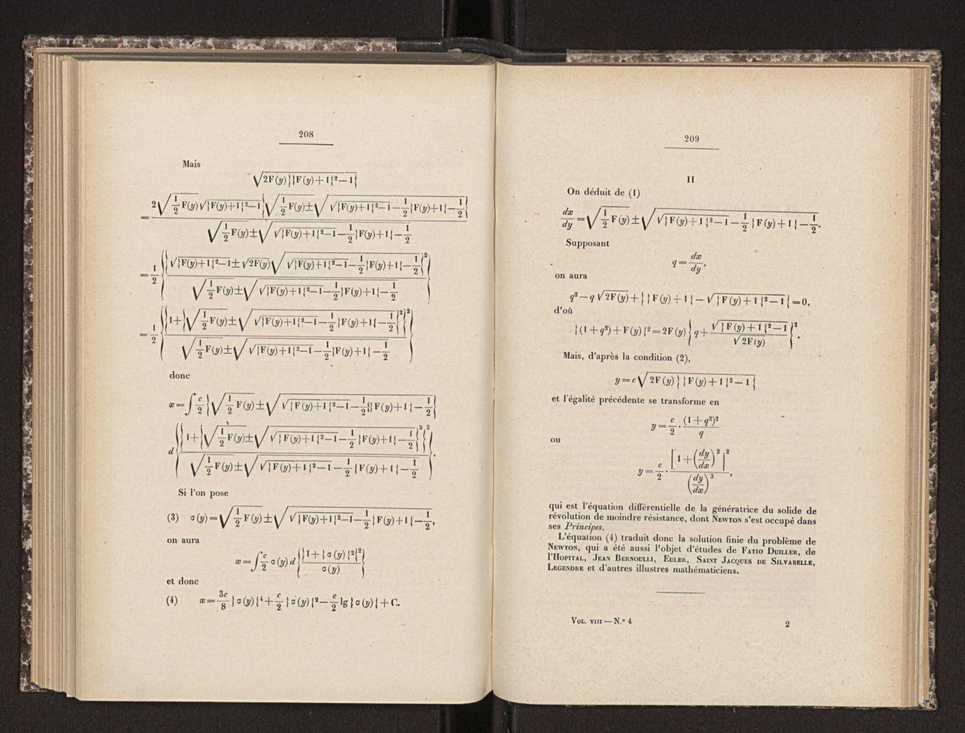 208
Mais
√2F(y)}{F(y)+1}²−1{
= 2√(1/2)F(y)√}F(y)+1{²−1{√(1/2)F(y)±√ √}F(y)+1{²−1−(1/2){F(y)+1}−(1/2){ / √(1/2)F(y)±√ √}F(y)+1{²−1−(1/2){F(y)+1}−(1/2)
= (1/2) { {√}F(y)+1{²−1±√2F(y)√ √}F(y)+1{²−1−(1/2){F(y)+1{−(1/2)}² / √(1/2)F(y)±√ √}F(y)+1{²−1−(1/2)}F(y)+1{−(1/2) }
= (1/2) { {1+}√(1/2)F(y)±√ √}F(y)+1{²−1−(1/2){F(y)+1{−(1/2){²}² / √(1/2)F(y)±√ √}F(y)+1{²−1−(1/2)}F(y)+1{−(1/2) }
donc
x=∫(c/2){√(1/2)F(y)±√ √}F(y)+1{²−1−(1/2){}F(y)+1{−(1/2){
d { {1+{√(1/2)F(y)±√ √}F(y)+1{²−1−(1/2){F(y)+1{−(1/2)}²}² / √(1/2)F(y)±√ √}F(y)+1{²−1−(1/2){F(y)+1{−(1/2) }.
Si l'on pose
(3) σ(y)=√(1/2)F(y)±√ √}F(y)+1{²−1−(1/2){F(y)+1{−(1/2),
on aura
x=∫(c/2)σ(y)d{ {1+{σ(y){²}² / σ(y) }
et donc
(4) x=(3c/8)}σ(y){⁴+(c/2)}σ(y){²−(c/2)lg}σ(y){+C.
209
II
On déduit de (1)
dx/dy=√(1/2)F(y)±√ √}F(y)+1{²−1−(1/2)}F(y)+1{−(1/2).
Supposant
q=dx/dy,
on aura
q²−q√2F(y)+}}F(y)+1{−√}F(y)+1{²−1{=0,
d'où
}(1+q²)+F(y){²=2F(y){q+√}F(y)+1{²−1/√2F(y)}².
Mais, d'après la condition (2),
y=c√2F(y)}}F(y)+1{²−1{
et l'égalité précédente se transforme en
y=(c/2)·(1+q²)²/q
ou
y=(c/2)·[1+(dy/dx)²]²/(dy/dx)³,
qui est l'équation différentielle de la génératrice du solide de
révolution de moindre résistance, dont Newton s'est occupé dans
ses Principes.
L'équation (4) traduit donc la solution finie du problème de
Newton, qui a été aussi l'objet d'études de Fatio Duiller, de
l'Hopital, Jean Bernoulli, Euler, Saint Jacques de Silvabelle,
Legendre et d'autres illustres mathématiciens.
Vol. viii — N.º 4 2